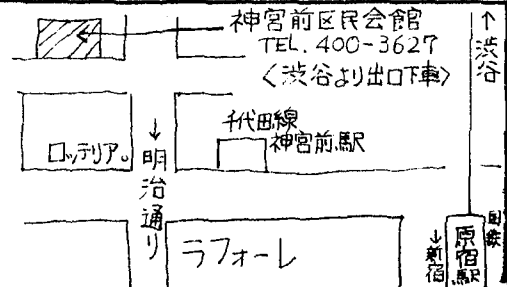 神宮前区民会館
TEL. 400-3627
〈渋谷より出口下車〉
↑渋谷
千代田線
神宮前駅
ロッテリア。
↓明治通り
ラフォーレ
↓新宿
原宿駅
国鉄